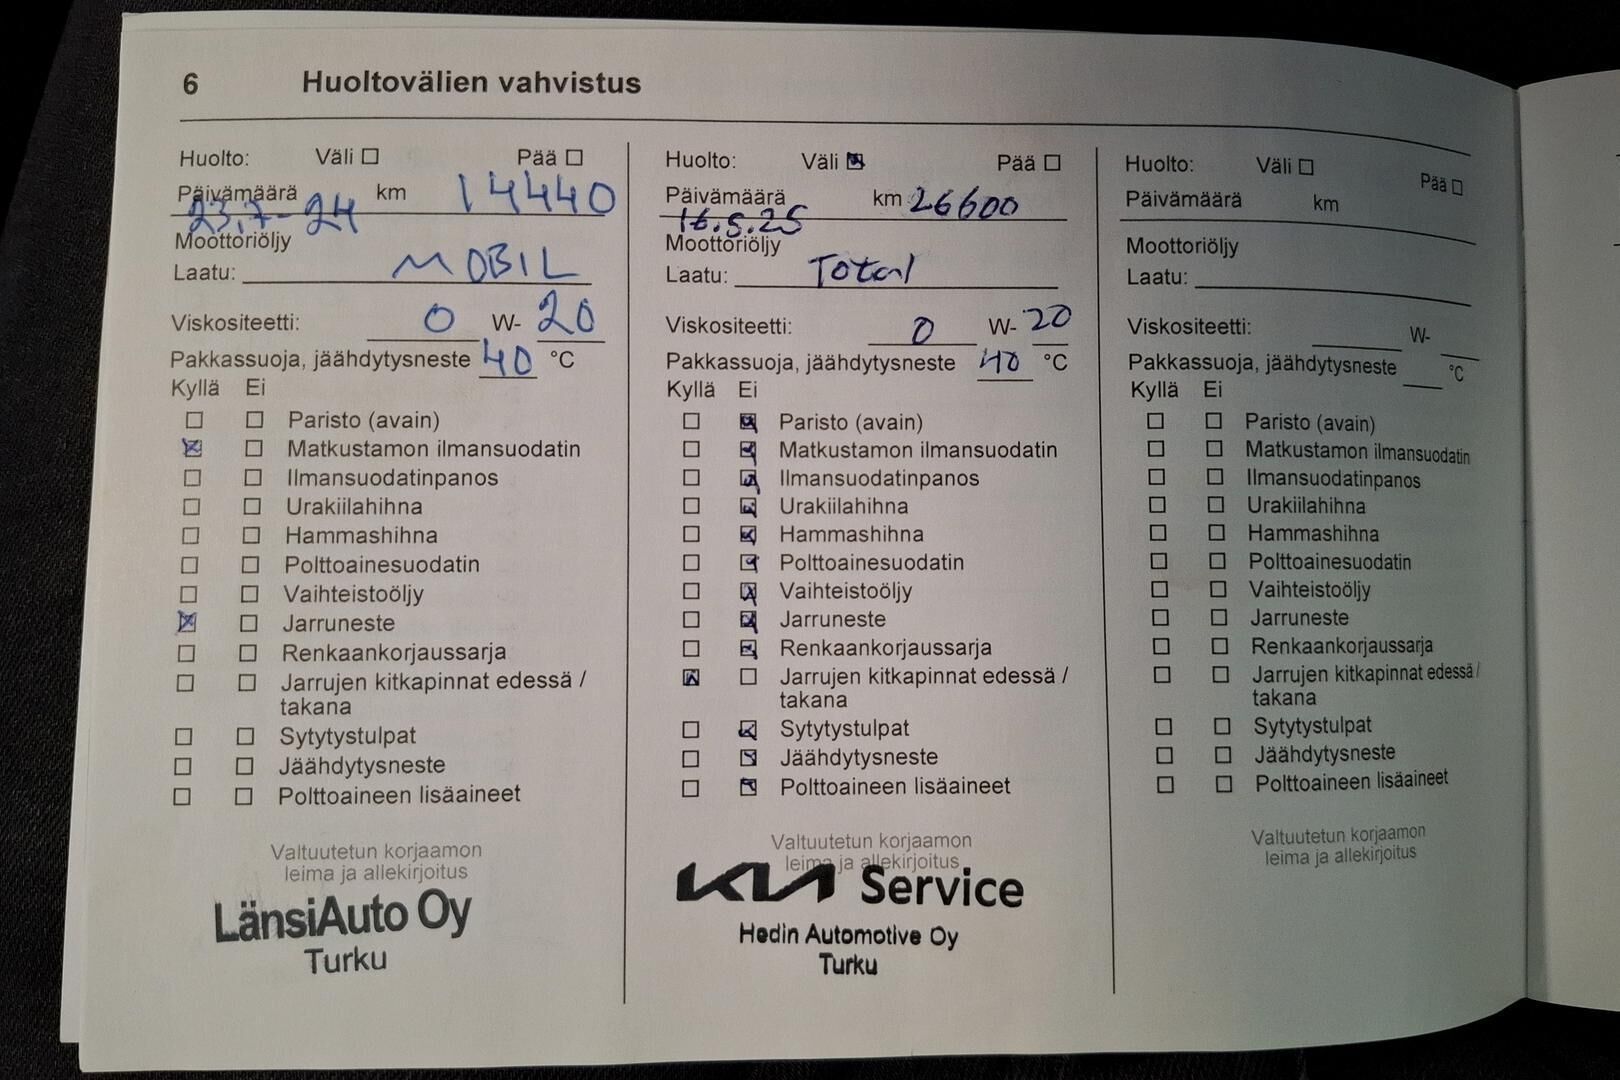 6 Huoltovälien vahvistus
Huolto: Väli Pää
Päivämäärä km 14440
23.7-24
Moottoriöljy
Laatu: MOBIL
Viskositeetti: 0 W- 20
Pakkassuoja, jäähdytysneste 40 °C
Kyllä Ei
Paristo (avain)
Matkustamon ilmansuodatin
Ilmansuodatinpanos
Urakiilahihna
Hammashihna
Polttoainesuodatin
Vaihteistoöljy
Jarruneste
Renkaankorjaussarja
Jarrujen kitkapinnat edessä /
takana
Sytytystulpat
Jäähdytysneste
Polttoaineen lisäaineet
Valtuutetun korjaamon
leima ja allekirjoitus
LänsiAuto Oy
Turku
Huolto: Väli Pää
Päivämäärä km 26600
16.5.25
Moottoriöljy
Laatu: Total
Viskositeetti: 0 W- 20
Pakkassuoja, jäähdytysneste 40 °C
Kyllä Ei
Paristo (avain)
Matkustamon ilmansuodatin
Ilmansuodatinpanos
Urakiilahihna
Hammashihna
Polttoainesuodatin
Vaihteistoöljy
Jarruneste
Renkaankorjaussarja
Jarrujen kitkapinnat edessä /
takana
Sytytystulpat
Jäähdytysneste
Polttoaineen lisäaineet
Valtuutetun korjaamon
leima ja allekirjoitus
KIA Service
Hedin Automotive Oy
Turku
Huolto: Väli Pää
Päivämäärä km
Moottoriöljy
Laatu:
Viskositeetti: W-
Pakkassuoja, jäähdytysneste °C
Kyllä Ei
Paristo (avain)
Matkustamon ilmansuodatin
Ilmansuodatinpanos
Urakiilahihna
Hammashihna
Polttoainesuodatin
Vaihteistoöljy
Jarruneste
Renkaankorjaussarja
Jarrujen kitkapinnat edessä /
takana
Sytytystulpat
Jäähdytysneste
Polttoaineen lisäaineet
Valtuutetun korjaamon
leima ja allekirjoitus